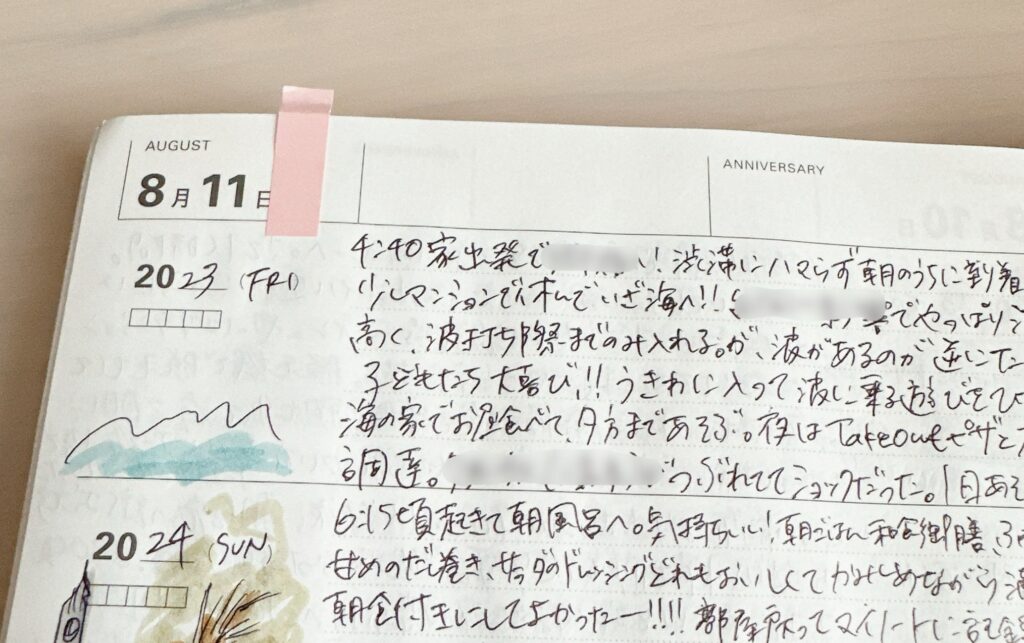 AUGUST
8月11日
ANNIVERSARY
2023 (FRI)
4:40 家出発で !! 渋滞にハマらず朝のうちに到着
少しマンションで休んでいざ海へ!! でやっぱり
高く、波打ち際までのみ入れる。が、波があるのが逆にた
子どもたち大喜び!! うきわに入って波に乗る遊びをひ
海の家でお昼食べて、夕方まであそぶ。夜はTakeoutピザと
調達。 がつぶれててショックだった。1日あそ
2024 (SUN)
6:15頃起きて朝風呂へ。気持ちいい! 朝ごはん和食御膳、
甘めのだし巻き、サラダのドレッシングどれもおいしくてかみしめながら
朝食付きにしてよかったー!!!! 部屋戻ってマイノートに記録